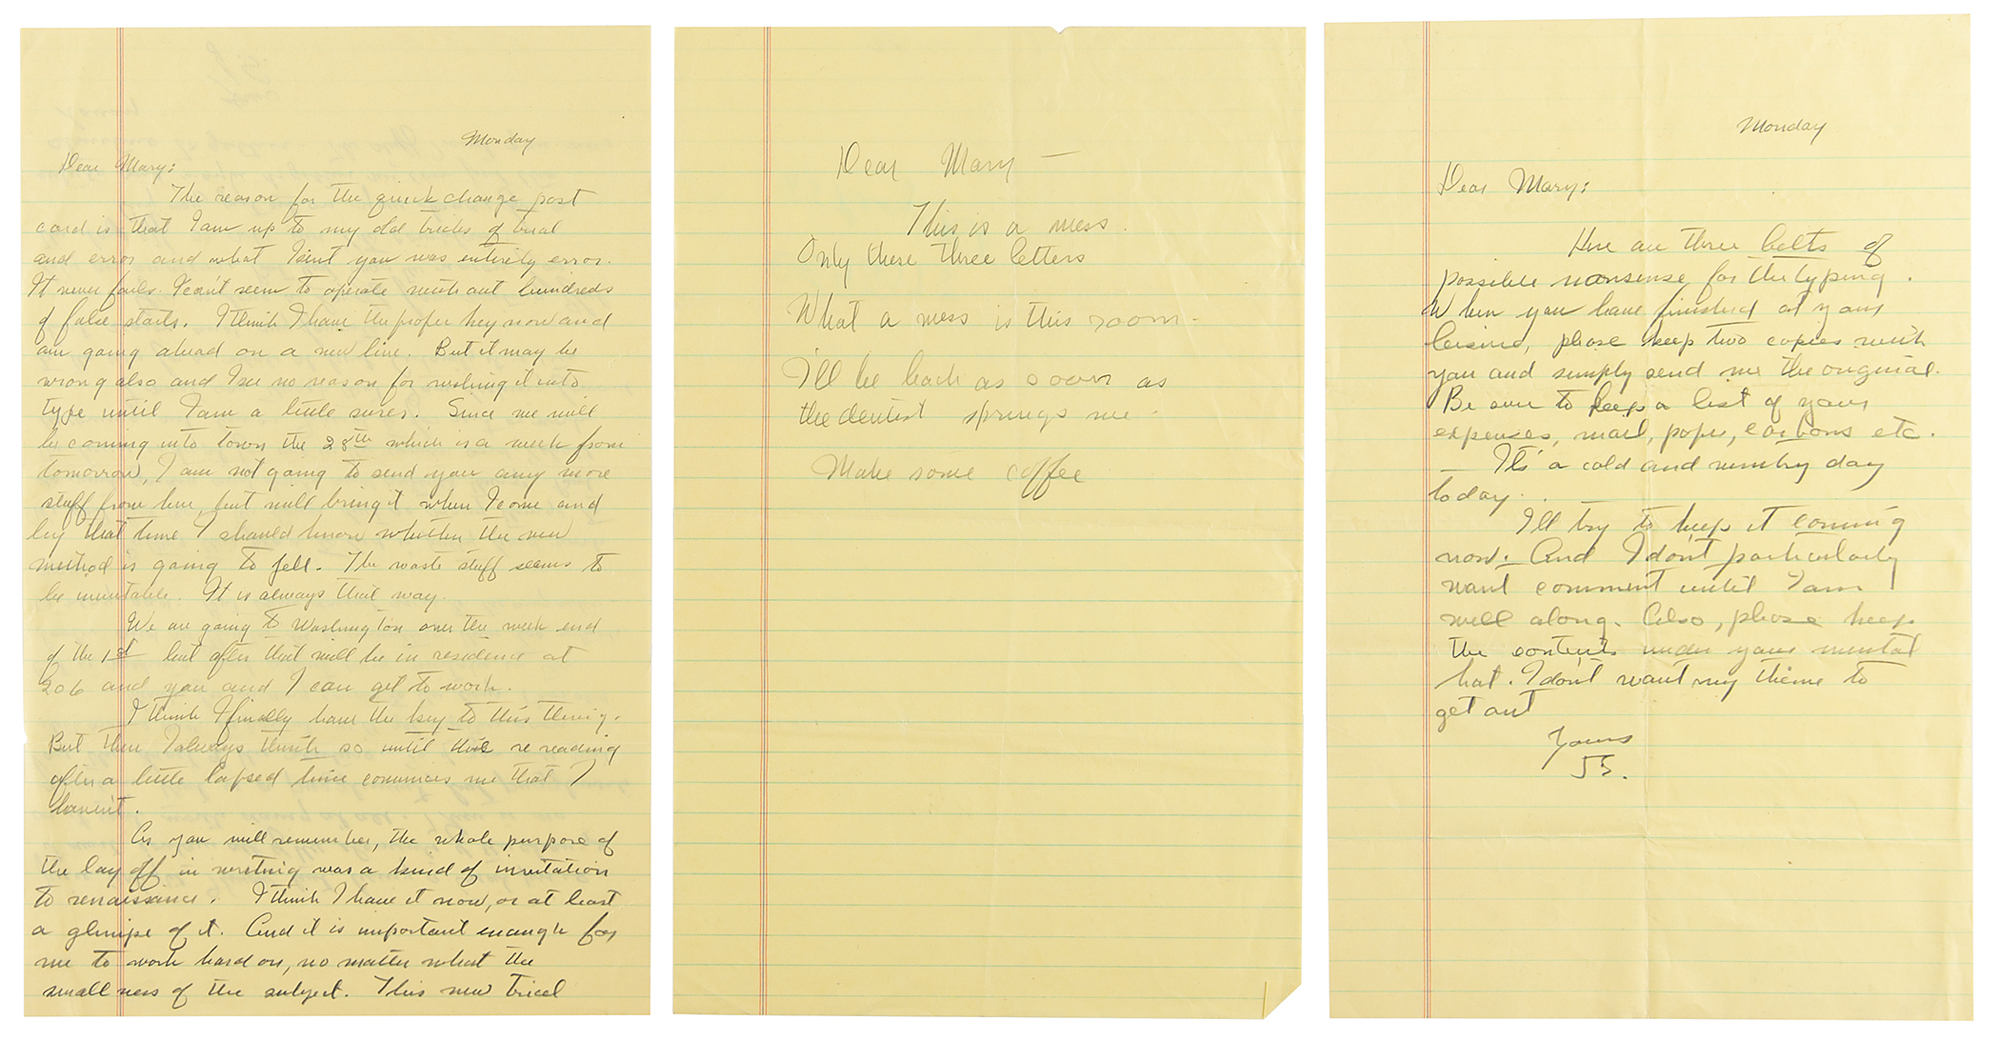 Monday
Dear Mary:
The reason for the quick change post
card is that I am up to my old tricks of trial
and error and what I sent you was entirely error.
It never fails. I can't seem to operate without hundreds
of false starts. I think I have the proper key now and
am going ahead on a new line. But it may be
wrong also and I see no reason for rushing it into
type until I am a little surer. Since we will
be coming into town the 28th which is a week from
tomorrow, I am not going to send you any more
stuff from here, but will bring it when I come and
by that time I should know whether the new
method is going to jell. The waste stuff seems to
be inevitable. It is always that way.
We are going to Washington over the week end
of the 1st but after that will be in residence at
206 and you and I can get to work.
I think I finally have the key to this thing.
But then I always think so until the re reading
after a little lapsed time convinces me that I
haven't.
As you will remember, the whole purpose of
the lay off in writing was a kind of invitation
to renaissance. I think I have it now, or at least
a glimpse of it. And it is important enough for
me to work hard on, no matter what the
smallness of the subject. This new trial
Dear Mary —
This is a mess.
Only these three letters
What a mess is this room.
I'll be back as soon as
the dentist springs me.
Make some coffee
Monday
Dear Mary:
Here are three belts of
possible nonsense for the typing.
When you have finished at your
leisure, please keep two copies with
you and simply send me the original.
Be sure to keep a list of your
expenses, mail, paper, carbons etc.
— It's a cold and day
today.
I'll try to keep it coming
now. And I don't particularly
want comment until I am
well along. Also, please keep
the contents under your mental
hat. I don't want my theme to
get out
Yours
JS.